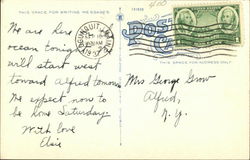 THIS SPACE FOR WRITING MESSAGES
We are here
ocean tonight
will start west
toward Alfred tomorrow
We expect now to
be home Saturday
With love
Elsie
OGUNQUIT, MAINE
POST
THIS SPACE FOR ADDRESS ONLY
Mrs George Grow
Alfred,
N.Y.